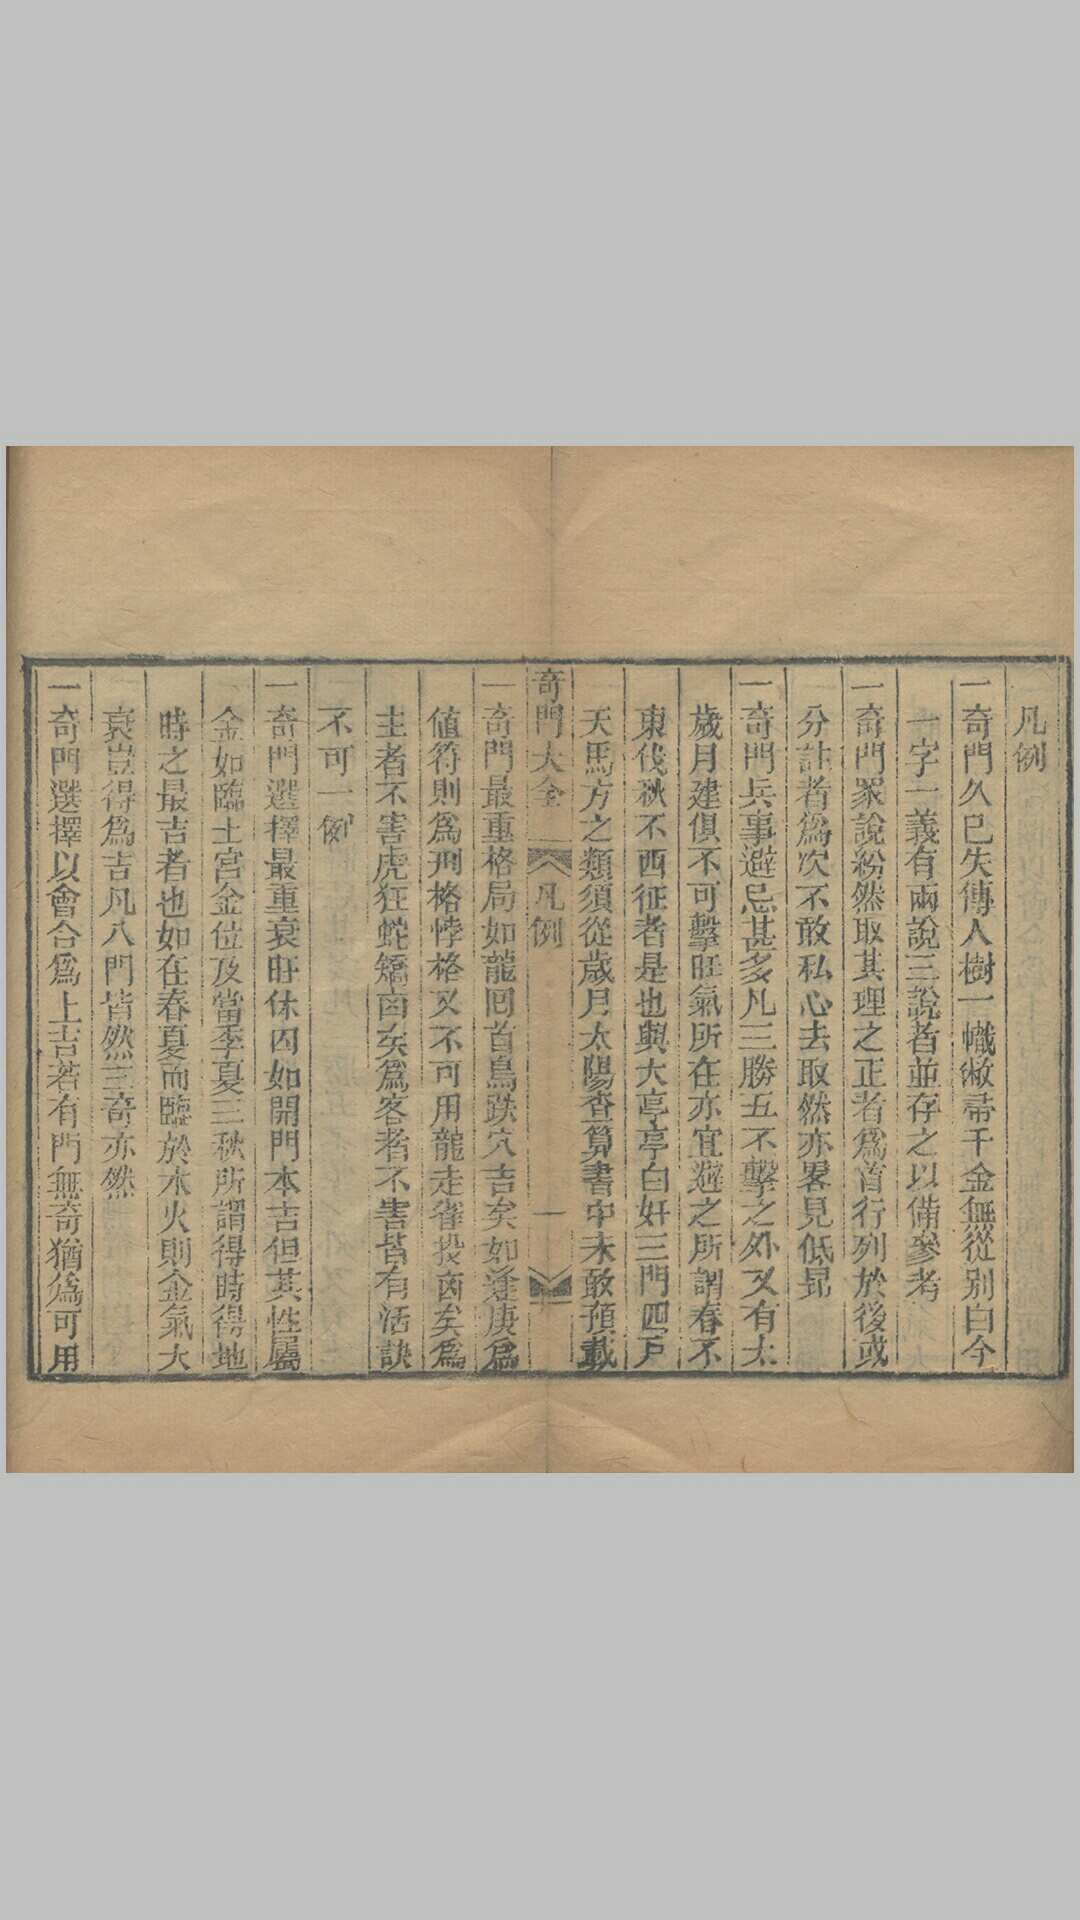 凡例
一奇門久已失傳人樹一幟敝帚千金無從别白今
一字一義有兩說三說者並存之以備參考
一奇門眾說紛然取其理之正者爲首行列於後或
分註者爲次不敢私心去取然亦畧見低昻
一奇門兵事避忌甚多凡三勝五不擊之外又有太
歲月建俱不可擊旺氣所在亦宜避之所謂春不
東伐秋不西征者是也與大亭亭白奸三門四戸
天馬方之類須從歲月太陽查算書中未敢預載
奇門大全 凡例 一
一奇門最重格局如龍囘首鳥跌穴吉矣如逢庚爲
値符則爲刑格悖格又不可用龍走雀投凶矣爲
主者不害虎狂蛇矯凶矣爲客者不害皆有活訣
不可一例
一奇門選擇最重衰旺休囚如開門本吉但其性屬
金如臨土宮金位及當季夏三秋所謂得時得地
時之最吉者也如在春夏而臨於木火則金氣大
衰豈得爲吉凡八門皆然三奇亦然
一奇門選擇以會合爲上吉若有門無奇猶爲可用